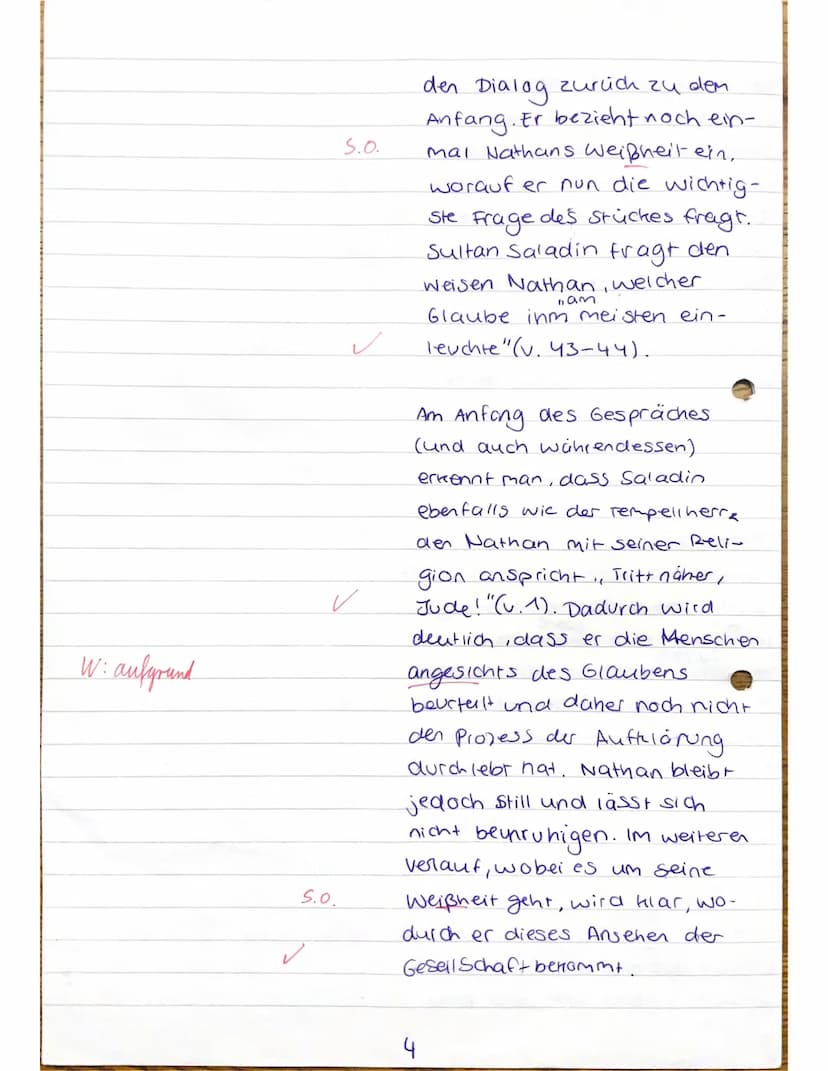 den Dialog zurück zu dem
Anfang. Er bezieht noch ein-
S.O. mal Nathans Weißheit ein,
worauf er nun die wichtig-
ste Frage des Stückes fragt.
Sultan Saladin fragt den
weisen Nathan, welcher
Glaube ihm „am meisten ein-
✓ leuchte" (v. 43-44).
Am Anfang des Gespräches
(und auch währendessen)
erkennt man, dass Saladin
ebenfalls wie der Tempelherr
den Nathan mit seiner Reli-
gion anspricht „Tritt näher,
✓ Jude!" (v. 1). Dadurch wird
deutlich, dass er die Menschen
W: aufgrund angesichts des Glaubens
beurteilt und daher noch nicht
den Prozess der Aufklärung
durchlebt hat. Nathan bleibt
jedoch still und lässt sich
nicht beunruhigen. Im weiteren
Verlauf, wobei es um seine
S.O. Weißheit geht, wird klar, wo-
durch er dieses Ansehen der
✓ Gesellschaft bekommt.
4